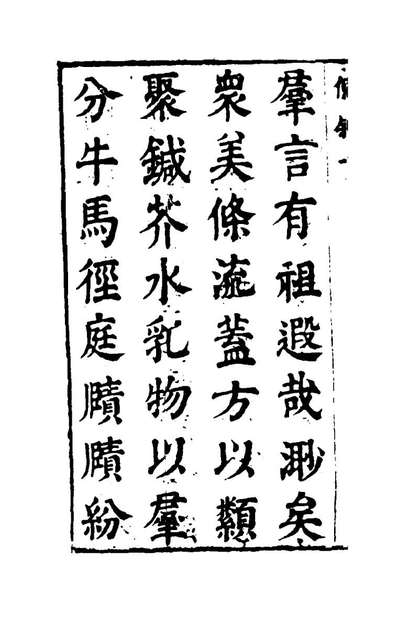 羣言有祖遐哉渺矣
衆美條流蓋方以類
聚鍼芥水乳物以羣
分牛馬徑庭賾賾紛